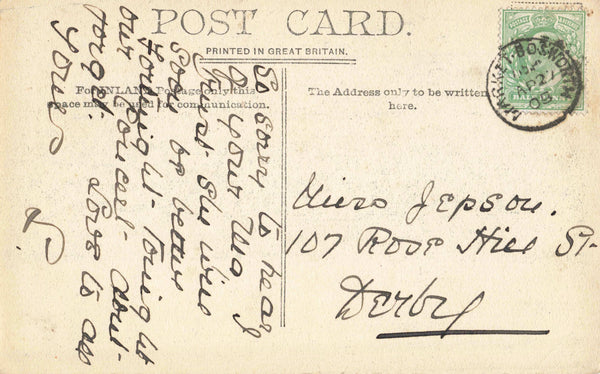 POST CARD.
PRINTED IN GREAT BRITAIN.
For INLAND Postage only this
space may be used for communication.
The Address only to be written
here.
MARKET BOSWORTH
AP 27
09
HALFPENNY
So sorry to hear
of your Ma I
trust she will
soon be better
Fortnight tonight
our concert don't
forget. Love to all
Yours
Miss Jepson.
107 Rose Hill St
Derby